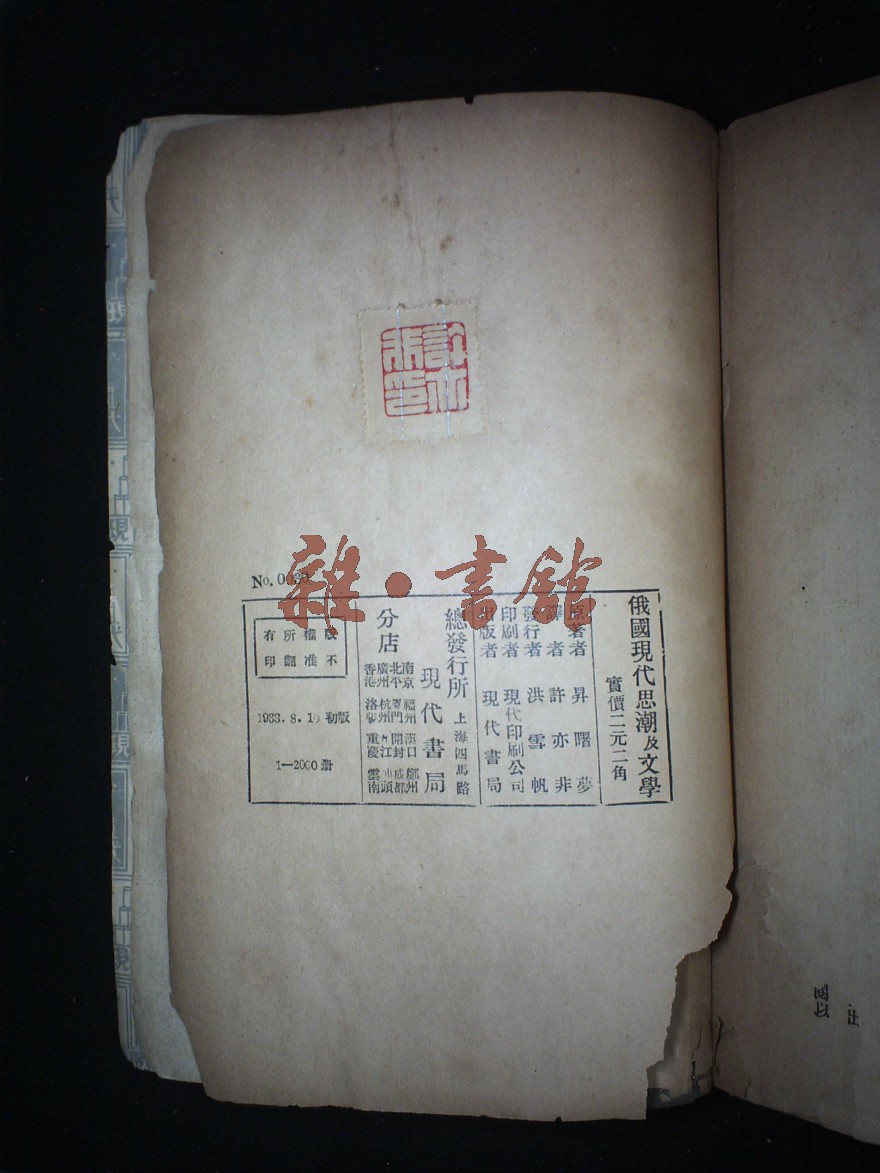 許亦
非印
No.
雜·書館
俄國現代思潮及文學
實價二元二角
原著者 昇曙夢
譯者 許亦非
發行者 洪雪帆
印刷者 現代印刷公司
出版者 現代書局
總發行所 上海四馬路
現代書局
分店
南京 福州 漢口 鄭州
北平 廈門 開封 成都
廣州 杭州 九江 汕頭
香港 洛陽 重慶 雲南
版權所有
不准翻印
1933.8.10 初版
1—2000 册